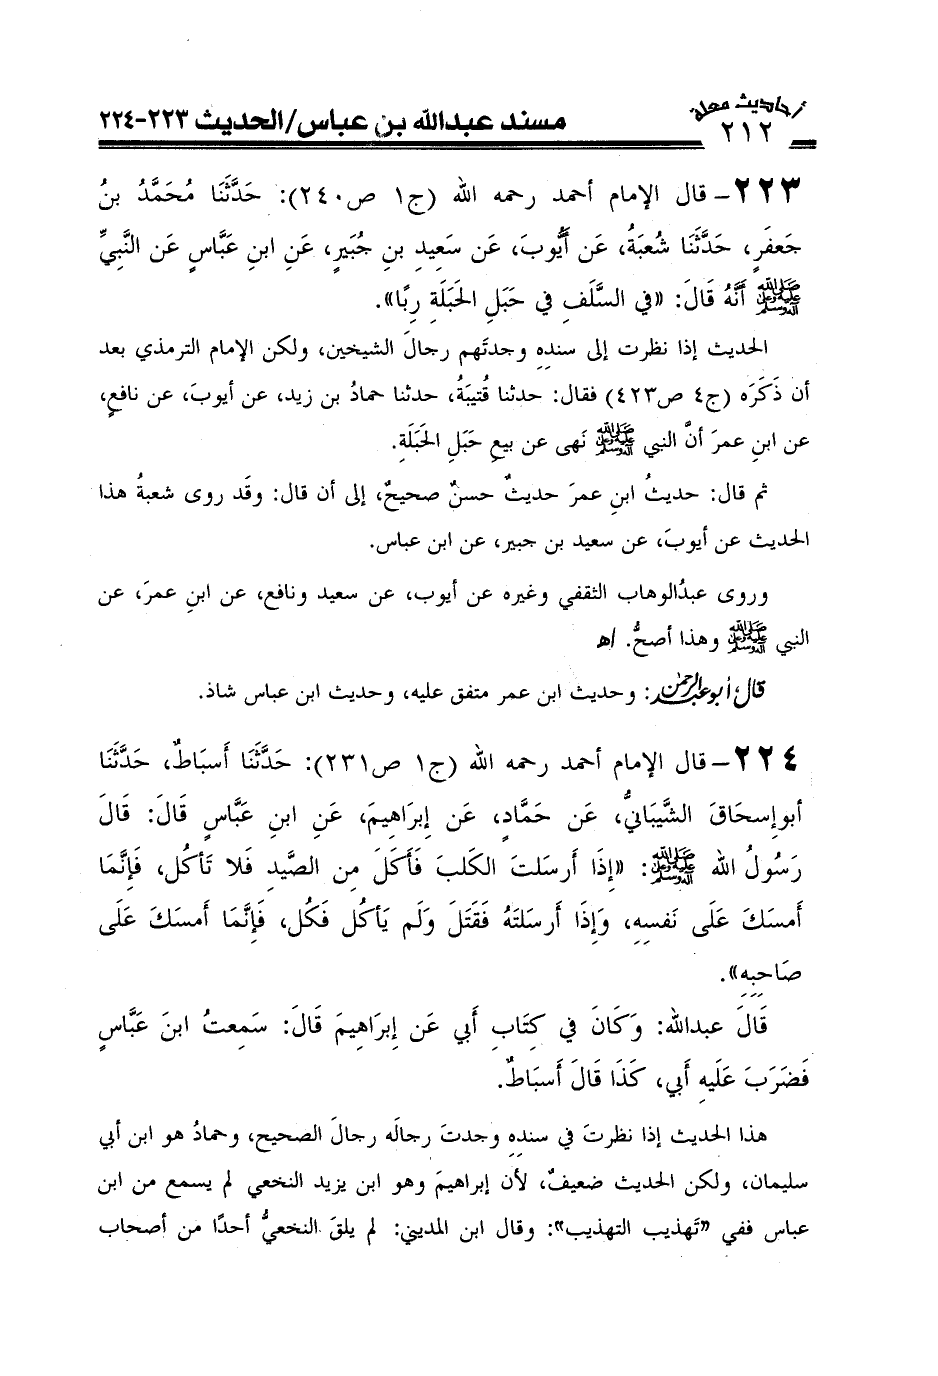 أحاديث معلة
٢١٢
مسند عبدالله بن عباس/الحديث ٢٢٣-٢٢٤
٢٢٣- قال الإمام أحمد رحمه الله (ج١ ص٢٤٠): حَدَّثَنَا مُحَمَّدُ بنُ
جَعفَرٍ، حَدَّثَنَا شُعبَةُ، عَن أَيُّوبَ، عَن سَعِيدِ بنِ جُبَيرٍ، عَنِ ابنِ عَبَّاسٍ عَنِ النَّبِيِّ
ﷺ أَنَّهُ قَالَ: «في السَّلَفِ في حَبَلِ الحَبَلَةِ رِبًا».
الحديث إذا نظرت إلى سندِهِ وجدتَهم رجالَ الشيخين، ولكن الإمام الترمذي بعد
أن ذَكَرَه (ج٤ ص٤٢٣) فقال: حدثنا قُتيبَةُ، حدثنا حمادُ بن زيد، عن أيوبَ، عن نافعٍ،
عن ابنِ عمرَ أنَّ النبي ﷺ نَهى عن بيعِ حَبَلِ الحَبَلَةِ.
ثم قال: حديثُ ابنِ عمرَ حديثٌ حسنٌ صحيحٌ، إلى أن قال: وقَد روى شعبةُ هذا
الحديث عن أيوبَ، عن سعيد بن جبير، عن ابن عباس.
وروى عبدُالوهاب الثقفي وغيره عن أيوب، عن سعيد ونافع، عن ابنِ عمرَ، عن
النبي ﷺ وهذا أصحُّ. اﻫ
قال أبو عبدالرحمن: وحديث ابن عمر متفق عليه، وحديث ابن عباس شاذ.
٢٢٤- قال الإمام أحمد رحمه الله (ج١ ص٢٣١): حَدَّثَنَا أَسبَاطٌ، حَدَّثَنَا
أبوإسحَاقَ الشَّيبَانيُّ، عَن حَمَّادٍ، عَن إِبرَاهِيمَ، عَنِ ابنِ عَبَّاسٍ قَالَ: قَالَ
رَسُولُ الله ﷺ: «إِذَا أَرسَلتَ الكَلبَ فَأَكَلَ مِن الصَّيدِ فَلا تَأكُل، فَإِنَّمَا
أَمسَكَ عَلَى نَفسِهِ، وَإِذَا أَرسَلتَهُ فَقَتَلَ وَلَم يَأكُل فَكُل، فَإِنَّمَا أَمسَكَ عَلَى
صَاحِبِهِ».
قَالَ عبدالله: وَكَانَ في كِتَابِ أَبي عَن إِبرَاهِيمَ قَالَ: سَمِعتُ ابنَ عَبَّاسٍ
فَضَرَبَ عَلَيهِ أَبي، كَذَا قَالَ أَسبَاطٌ.
هذا الحديث إذا نظرتَ في سندِهِ وجدتَ رجالَه رجالَ الصحيح، وحمادُ هو ابن أبي
سليمان، ولكن الحديث ضعيفٌ، لأن إبراهيمَ وهو ابن يزيد النخعي لم يسمع من ابن
عباس ففي «تَهذيب التهذيب»: وقال ابن المديني: لم يلقَ النخعيُّ أحدًا من أصحاب